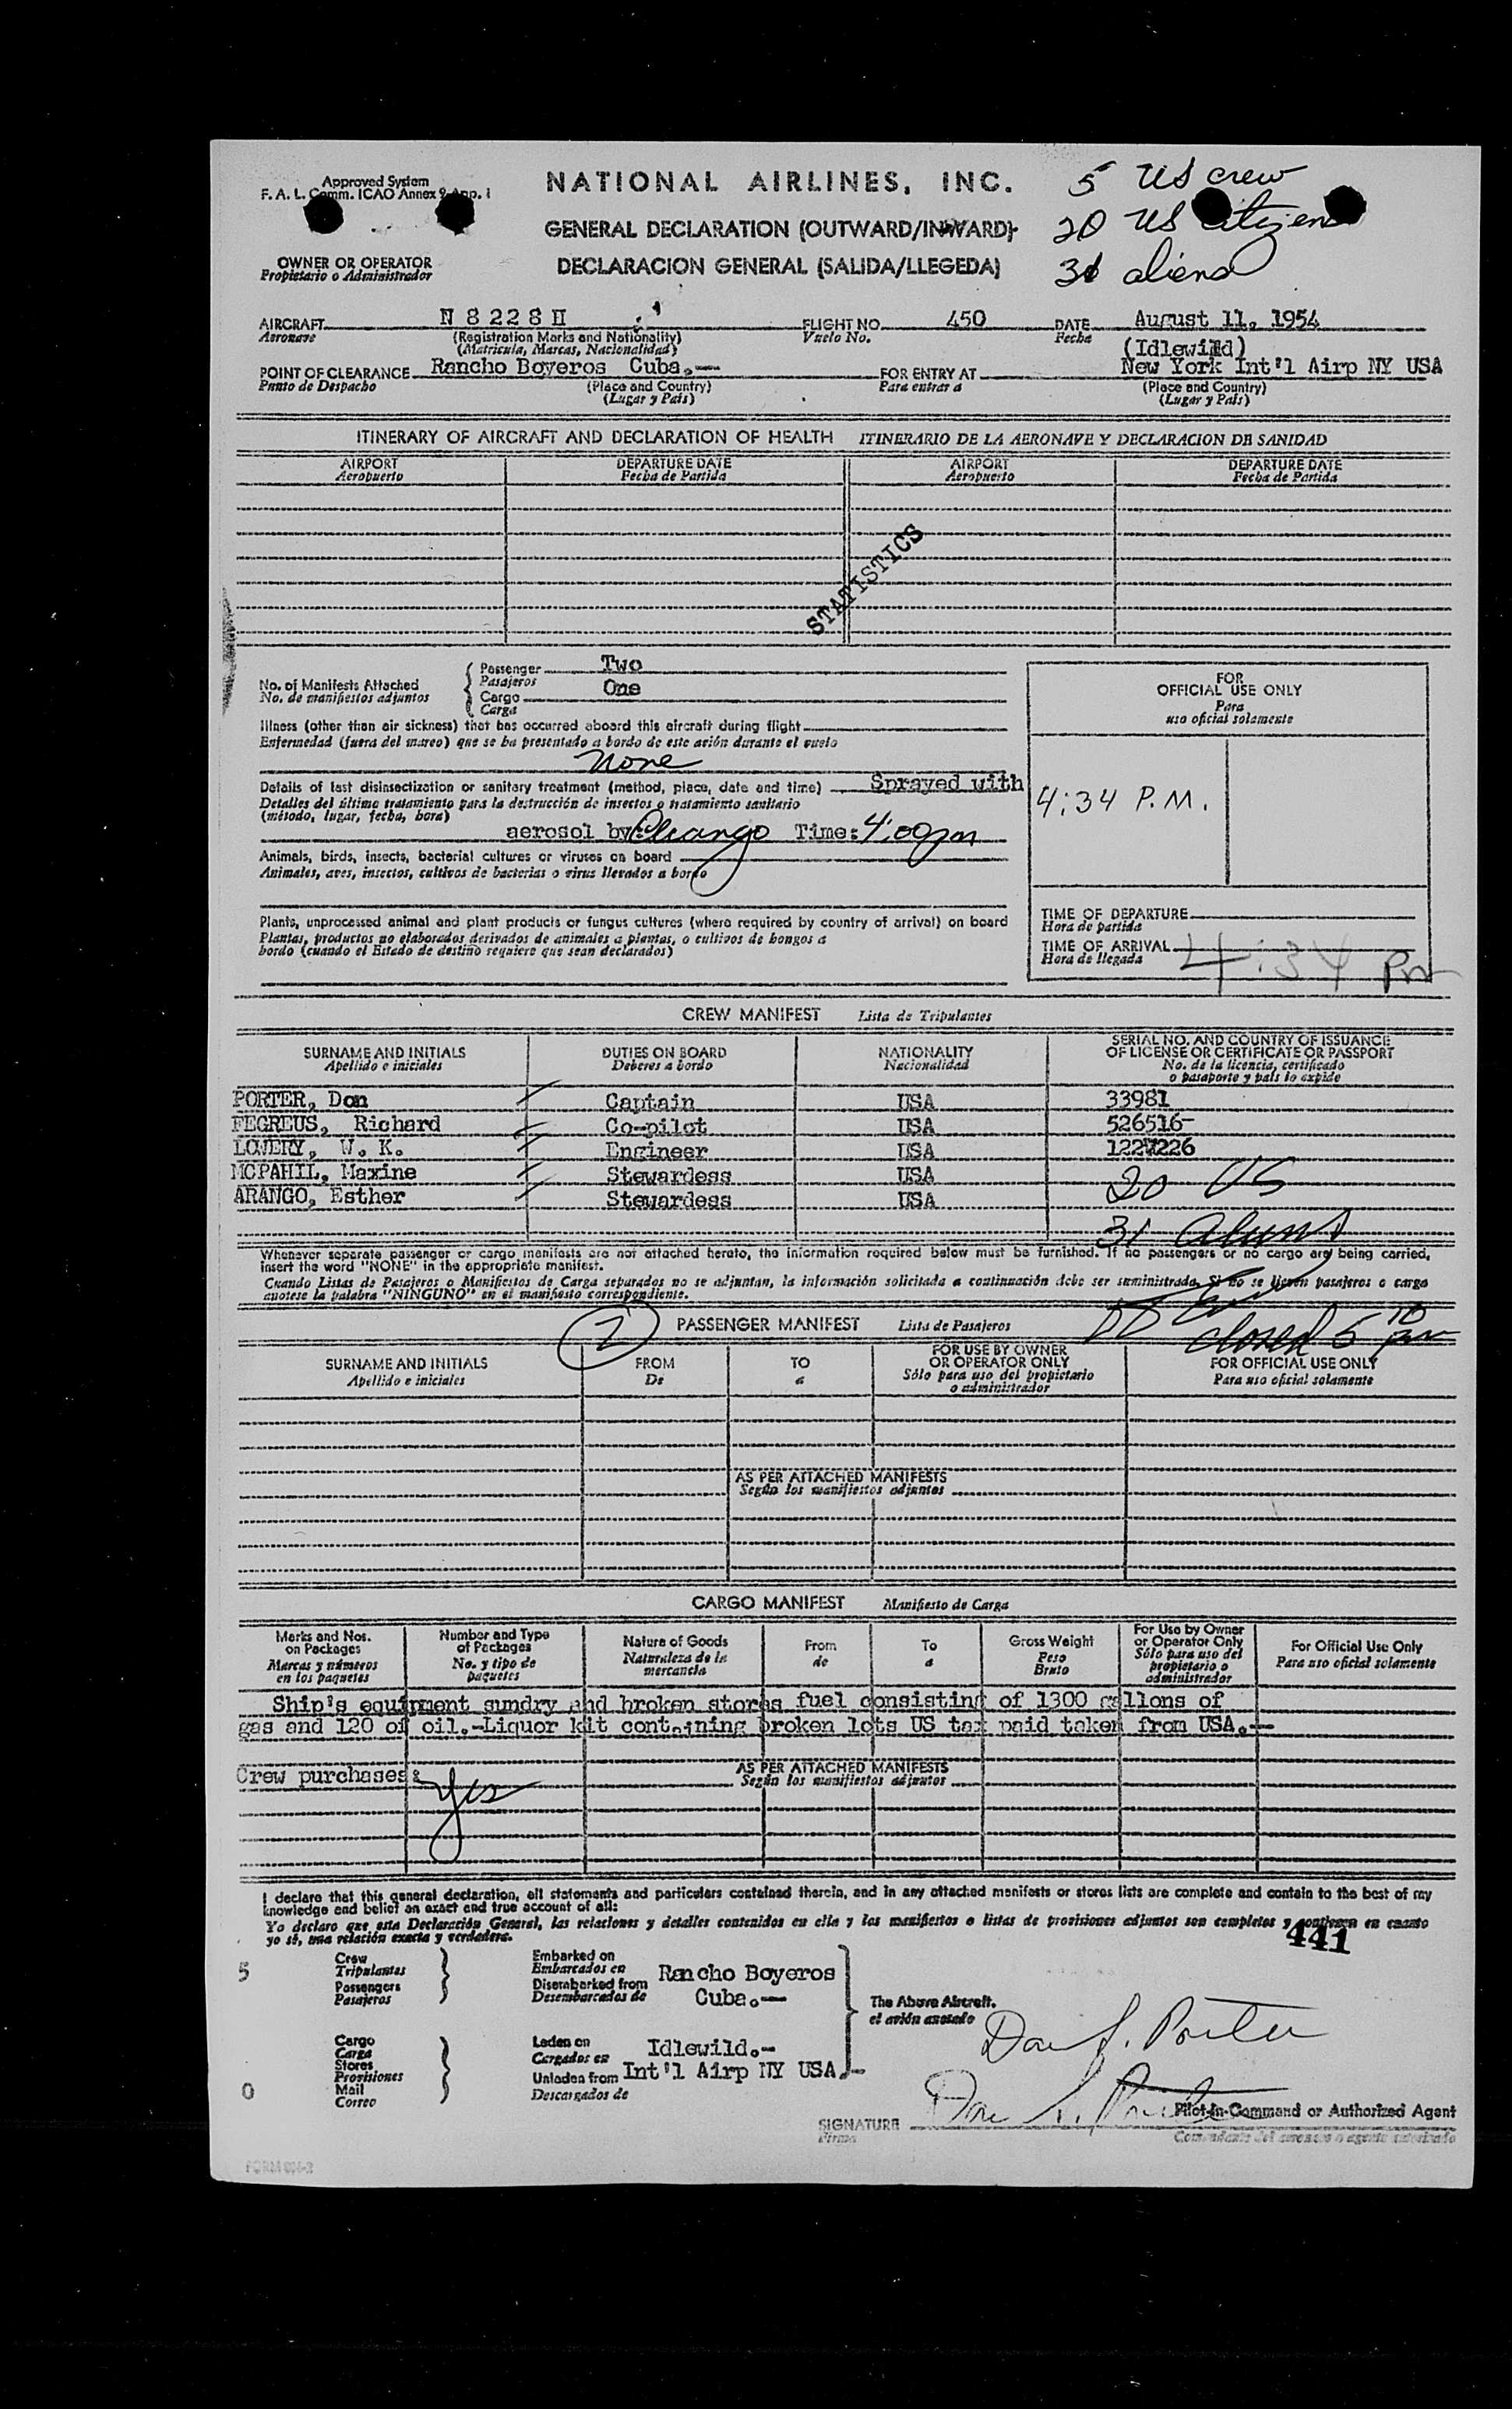 Approved System
F. A. L. Comm. ICAO Annex 9 App. 1
NATIONAL AIRLINES, INC.
5 US crew
GENERAL DECLARATION (OUTWARD/INWARD)
20 US citizens
OWNER OR OPERATOR
Propietario o Administrador
DECLARACION GENERAL (SALIDA/LLEGEDA)
31 aliens
AIRCRAFT N 8 22 8 H FLIGHT NO. 450 DATE August 11, 1954
Aeronave (Registration Marks and Nationality) Vuelo No. Fecha
(Matricula, Marcas, Nacionalidad) (Idlewild)
POINT OF CLEARANCE Rancho Boyeros Cuba.— FOR ENTRY AT New York Int'l Airp NY USA
Punto de Despacho (Place and Country) Para entrar a (Place and Country)
(Lugar y País) (Lugar y País)
ITINERARY OF AIRCRAFT AND DECLARATION OF HEALTH ITINERARIO DE LA AERONAVE Y DECLARACION DE SANIDAD
AIRPORT DEPARTURE DATE AIRPORT DEPARTURE DATE
Aeropuerto Fecha de Partida Aeropuerto Fecha de Partida
STATISTICS
Passenger Two
No. of Manifests Attached Pasajeros
No. de manifiestos adjuntos Cargo One
Carga
FOR
OFFICIAL USE ONLY
Para
uso oficial solamente
Illness (other than air sickness) that has occurred aboard this aircraft during flight
Enfermedad (fuera del mareo) que se ha presentado a bordo de este avión durante el vuelo
None
Details of last disinsectization or sanitary treatment (method, place, date and time) Sprayed with
Detalles del último tratamiento para la destrucción de insectos o tratamiento sanitario
(método, lugar, fecha, hora)
4:34 P.M.
aerosol by: Time: 4:00pm
Animals, birds, insects, bacterial cultures or viruses on board
Animales, aves, insectos, cultivos de bacterias o virus llevados a bordo
Plants, unprocessed animal and plant products or fungus cultures (where required by country of arrival) on board
Plantas, productos no elaborados derivados de animales a plantas, o cultivos de hongos a
bordo (cuando el Estado de destino requiere que sean declarados)
TIME OF DEPARTURE
Hora de partida
TIME OF ARRIVAL 4:34 Pm
Hora de llegada
CREW MANIFEST Lista de Tripulantes
SURNAME AND INITIALS DUTIES ON BOARD NATIONALITY SERIAL NO. AND COUNTRY OF ISSUANCE
OF LICENSE OR CERTIFICATE OR PASSPORT
Apellido e iniciales Deberes a bordo Nacionalidad No. de la licencia, certificado
o pasaporte y país lo expide
PORTER, Don Captain USA 33981
FEGREUS, Richard Co-pilot USA 526516-
LOWERY, W. K. Engineer USA 1227226
MCPAHIL, Maxine Stewardess USA 20 US
ARANGO, Esther Stewardess USA
31 Aliens
Whenever separate passenger or cargo manifests are not attached hereto, the information required below must be furnished. If no passengers or no cargo are being carried,
insert the word "NONE" in the appropriate manifest.
Cuando Listas de Pasajeros o Manifiestos de Carga separados no se adjuntan, la información solicitada a continuación debe ser suministrada. Si no se llevan pasajeros o carga
anotese la palabra "NINGUNO" en el manifiesto correspondiente.
PASSENGER MANIFEST Lista de Pasajeros
closed 5 10 pm
SURNAME AND INITIALS FROM TO FOR USE BY OWNER
OR OPERATOR ONLY FOR OFFICIAL USE ONLY
Apellido e iniciales De a Sólo para uso del propietario
o administrador Para uso oficial solamente
AS PER ATTACHED MANIFESTS
Según los manifiestos adjuntos
CARGO MANIFEST Manifiesto de Carga
Marks and Nos.
on Packages
Marcas y números
en los paquetes
Number and Type
of Packages
No. y tipo de
paquetes
Nature of Goods
Naturaleza de la
mercancía
From
de
To
a
Gross Weight
Peso
Bruto
For Use by Owner
or Operator Only
Sólo para uso del
propietario o
administrador
For Official Use Only
Para uso oficial solamente
Ship's equipment sundry and broken stores fuel consisting of 1300 gallons of
gas and 120 of oil.-Liquor kit containing broken lots US tax paid taken from USA.—
AS PER ATTACHED MANIFESTS
Según los manifiestos adjuntos
Crew purchases: Yes
I declare that this general declaration, all statements and particulars contained therein, and in any attached manifests or stores lists are complete and contain to the best of my
knowledge and belief an exact and true account of all:
Yo declaro que esta Declaración General, las relaciones y detalles contenidos en ella y los manifiestos o listas de provisiones adjuntos son completos y contienen en cuanto
yo sé, una relación exacta y verdadera.
441
5
Crew
Tripulantes
Passengers
Pasajeros
Embarked on
Embarcados en
Disembarked from
Desembarcados de
Rancho Boyeros
Cuba.—
The Above Aircraft.
el avión anotado
Don J. Porter
0
Cargo
Carga
Stores
Provisiones
Mail
Correo
Laden on
Cargados en
Unladen from
Descargados de
Idlewild.-
Int'l Airp NY USA.-
SIGNATURE Don J. Porter Pilot-in-Command or Authorized Agent
Firma Comandante del aeronave o agente autorizado